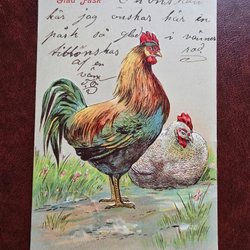 Glad Påsk
kär jag önskar här en
påsk så glad i vänners
rad
tillönskas
af en
vän